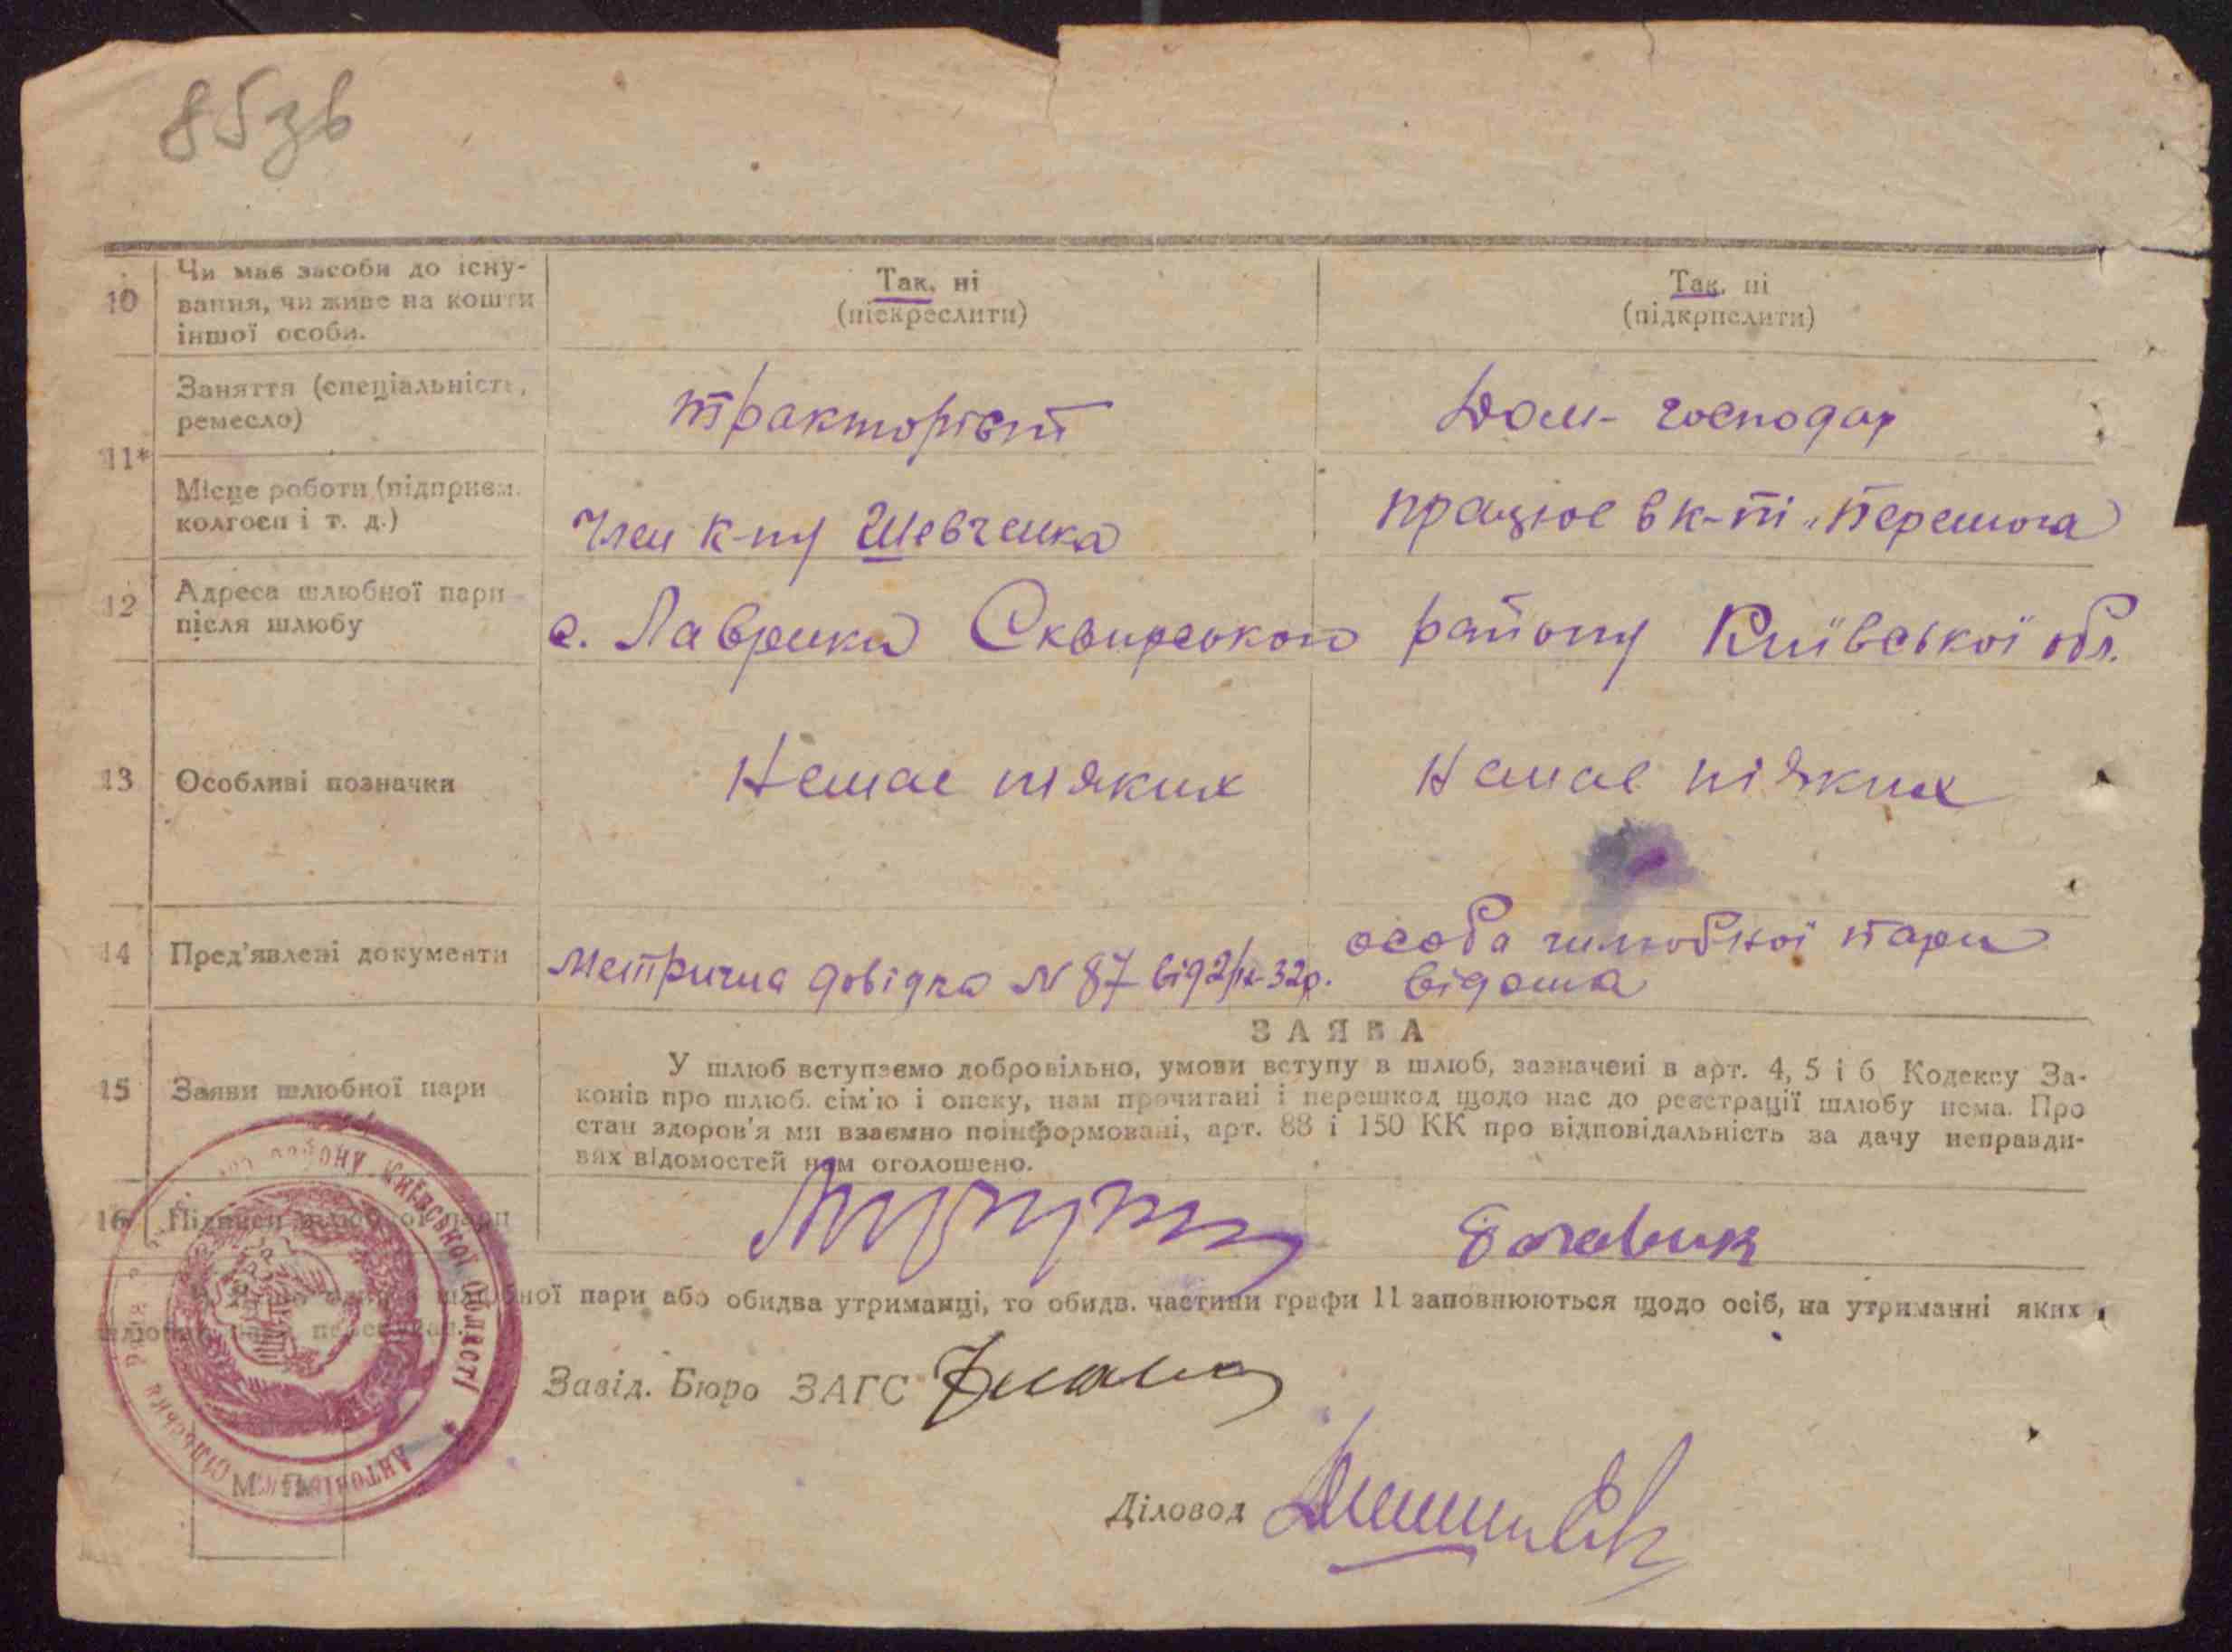 85зв
10
Чи має засоби до існу-
вання, чи живе на кошти
іншої особи.
Так, ні
(піскреслити)
Так, ні
(підкрпслити)
11*
Заняття (спеціальність,
ремесло)
тракторіст
Дом-господар
Місце роботи (підприєм.
колгосп і т. д.)
Член к-пу Шевченка
працює в к-пі „Перемога
12
Адреса шлюбної пари
після шлюбу
с. Лаврики Сквирського району Київської обл.
13
Особливі позначки
Немає ніяких
Немає ніяких
14
Пред'явлені документи
Метрична довідка N 87 від 2/ -32р.
особа шлюбної пари
відома
ЗАЯВА
15
Заяви шлюбної пари
У шлюб вступаємо добровільно, умови вступу в шлюб, зазначені в арт. 4, 5 і 6 Кодексу За-
конів про шлюб. сім'ю і опеку, нам прочитані і перешкод щодо нас до реєстрації шлюбу нема. Про
стан здоров'я ми взаємно поінформовані, арт. 88 і 150 КК про відповідальність за дачу неправди-
вих відомостей нам оголошено.
16
Підписи шлюбної пари
шлюбної пари або обидва утриманці, то обидв. частини графи 11 заповнюються щодо осіб, на утриманні яких
Завід. Бюро ЗАГС
Діловод
М. П.
району Київської області * Антонівська сільська Рада